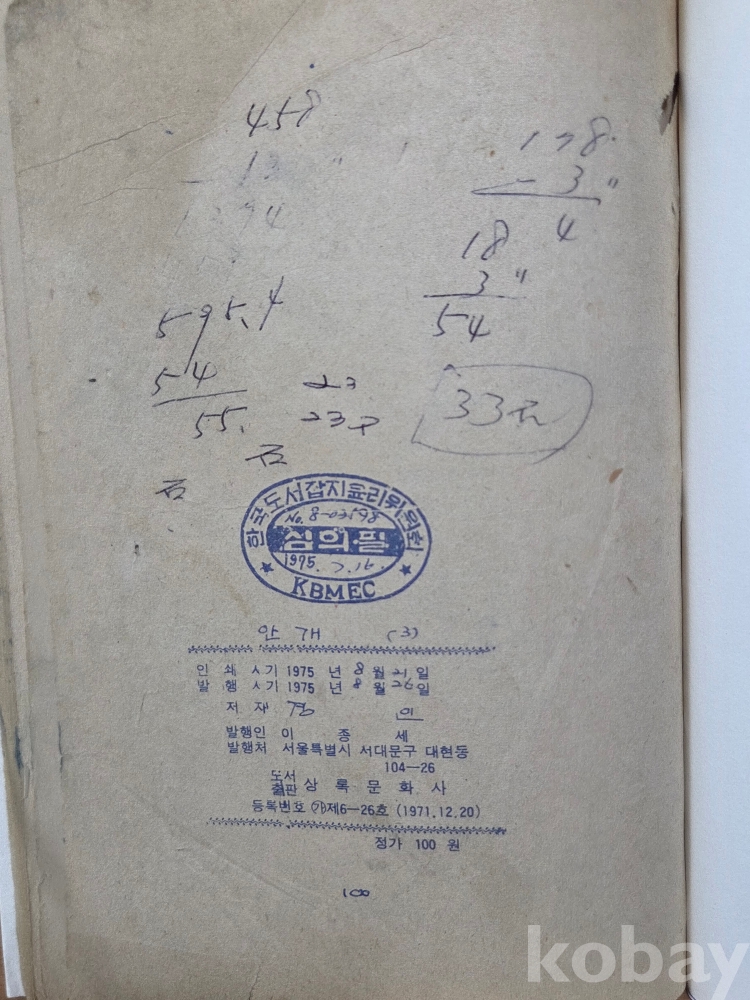 458
13 "
178.
- 3 "
4
18
3 "
54
595.4
54
55.
23
23
33
한국도서잡지윤리위원회
No. 8-03598
심의·필
1975. 7. 16.
★ KBMEC ★
안개 (3)
인 쇄 시기 1975 년 8 월 21 일
발 행 시기 1975 년 8 월 26 일
저 재
발행인 이 종 세
발행처 서울특별시 서대문구 대현동
104—26
도서출판 상 록 문 화 사
등록번호 ㉮제6—26호 (1971.12.20)
정가 100 원
100
kobay